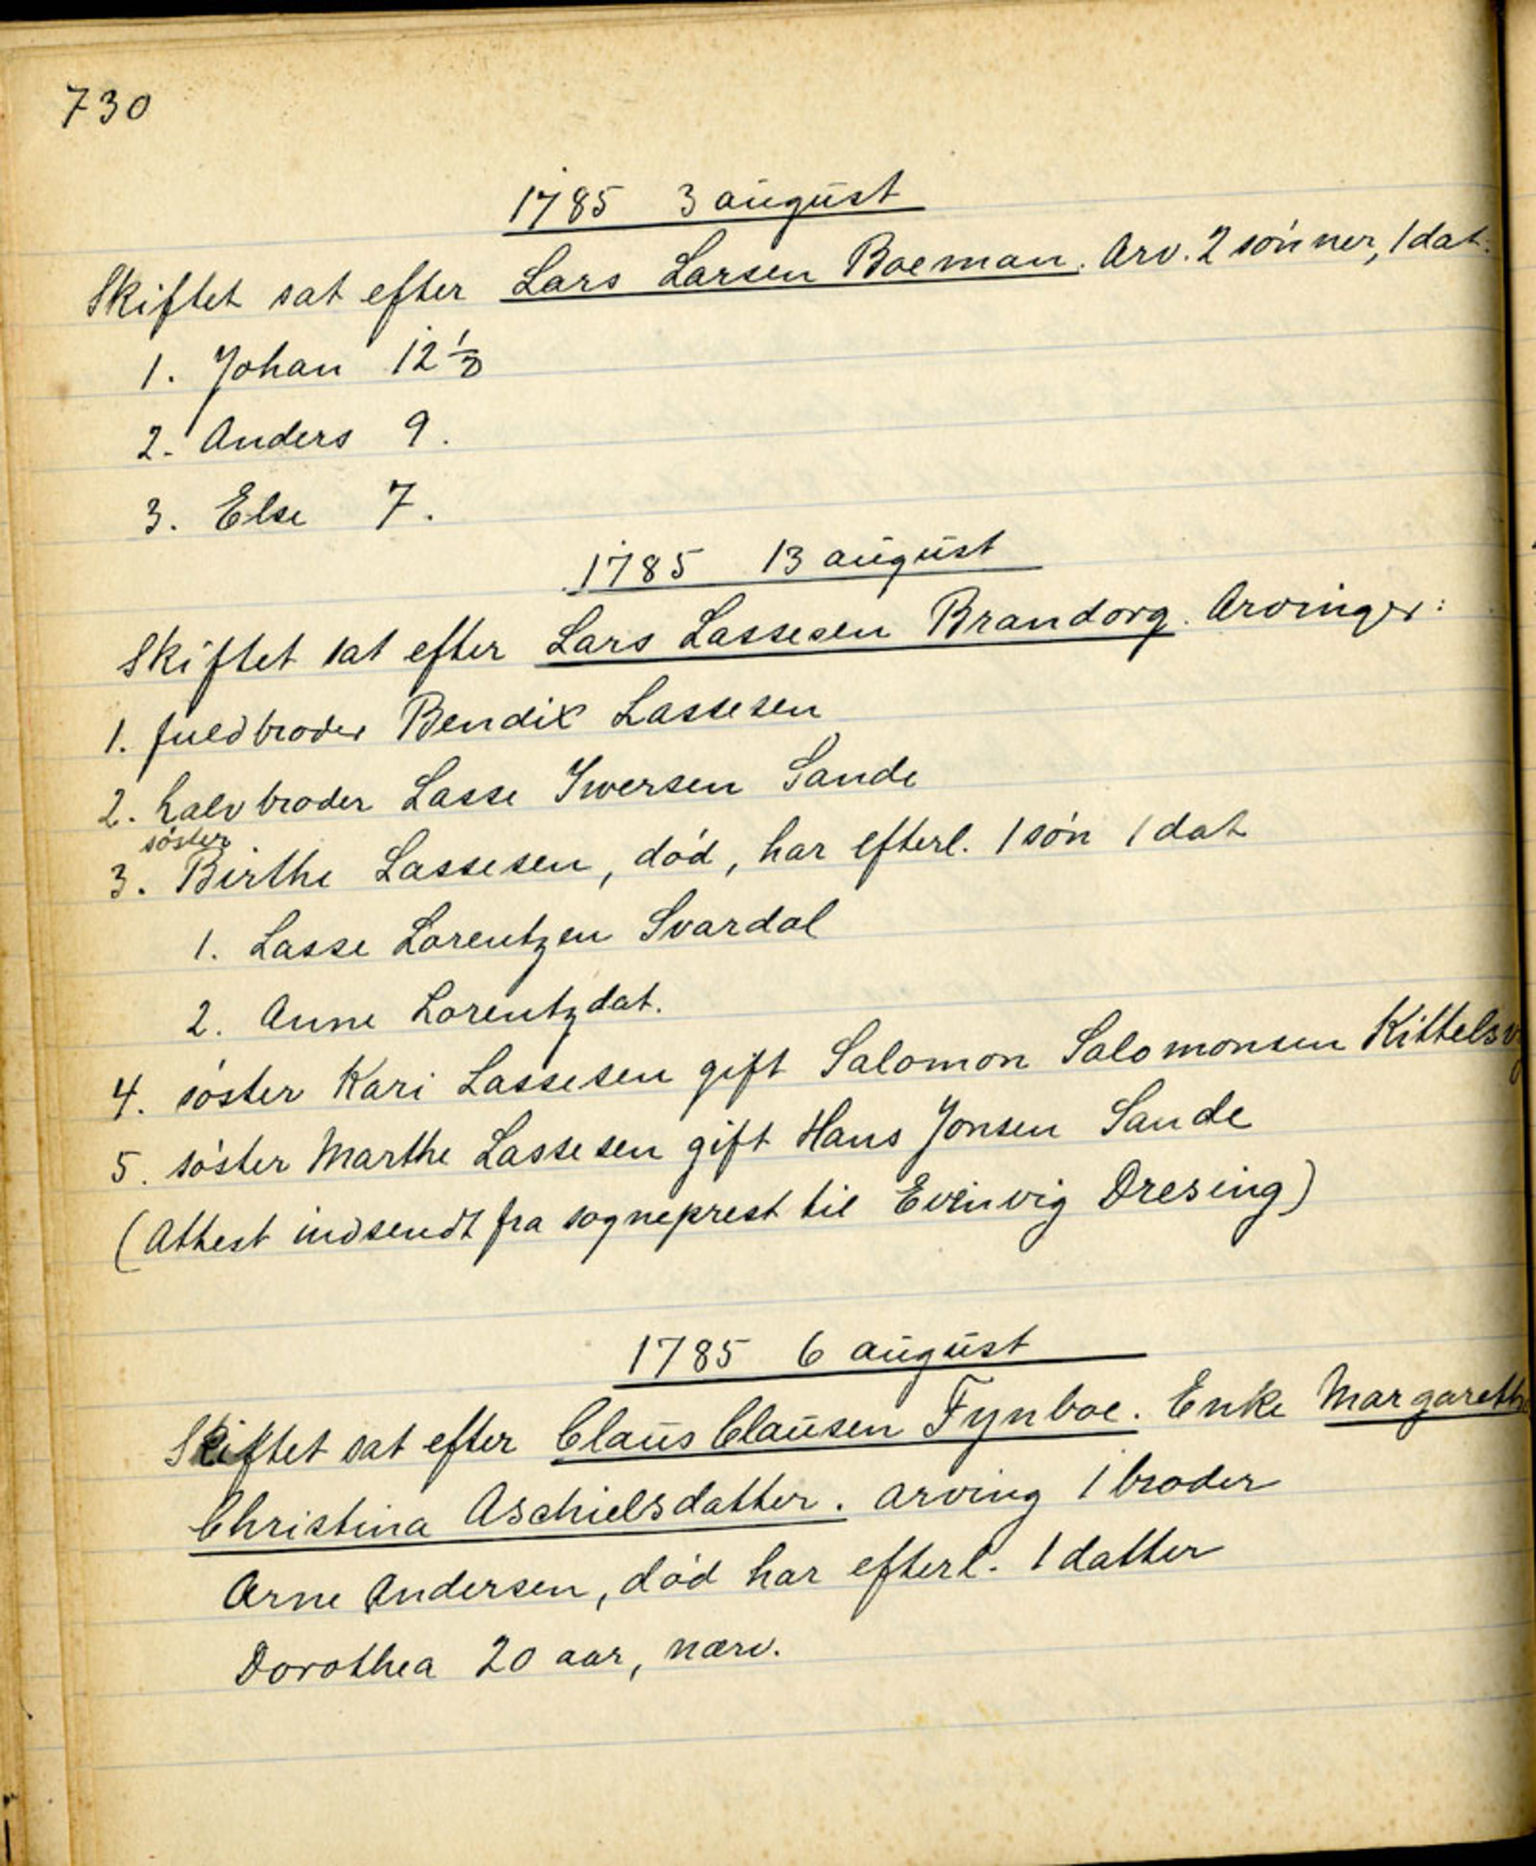 730
1785 3 august
Skiftet sat efter Lars Larsen Boeman. Arv. 2 sønner, 1 dat.
1. Johan 12 1/2
2. Anders 9.
3. Else 7.
1785 13 august
Skiftet sat efter Lars Lassesen Brandorg. Arvinger:
1. fuldbroder Bendix Lassesen
2. halvbroder Lasse Iwersen Sande
søster
3. Birthe Lassesen, død, har efterl. 1 søn 1 dat
1. Lasse Lorentzen Svardal
2. Anne Lorentzdat.
4. søster Kari Lassesen gift Salomon Salomonsen
5. søster Marthe Lassesen gift Hans Jonsen Sande
(Attest indsendt fra sogneprest til Evinvig Dresing)
1785 6 august
Skiftet sat efter Claus Clausen Fynboe. Enke Margarethe
Christina Aschielsdatter. arving 1 broder
Arne Andersen, død har efterl. 1 datter
Dorothea 20 aar, nærv.